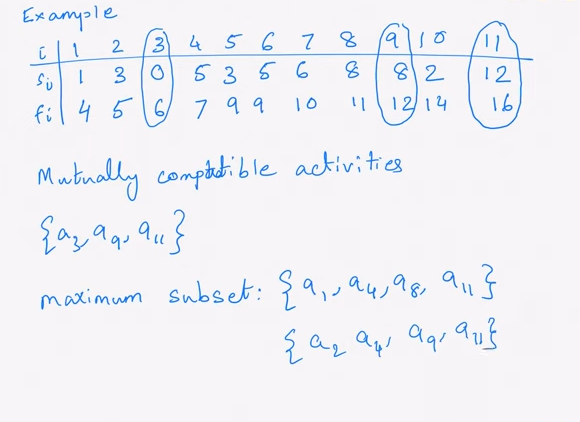 Example
i | 1 2 3 4 5 6 7 8 9 10 11
si | 1 3 0 5 3 5 6 8 8 2 12
fi | 4 5 6 7 9 9 10 11 12 14 16
Mutually compatible activities
{a3, a9, a11}
maximum subset: {a1, a4, a8, a11}
{a2 a4, a9, a11}